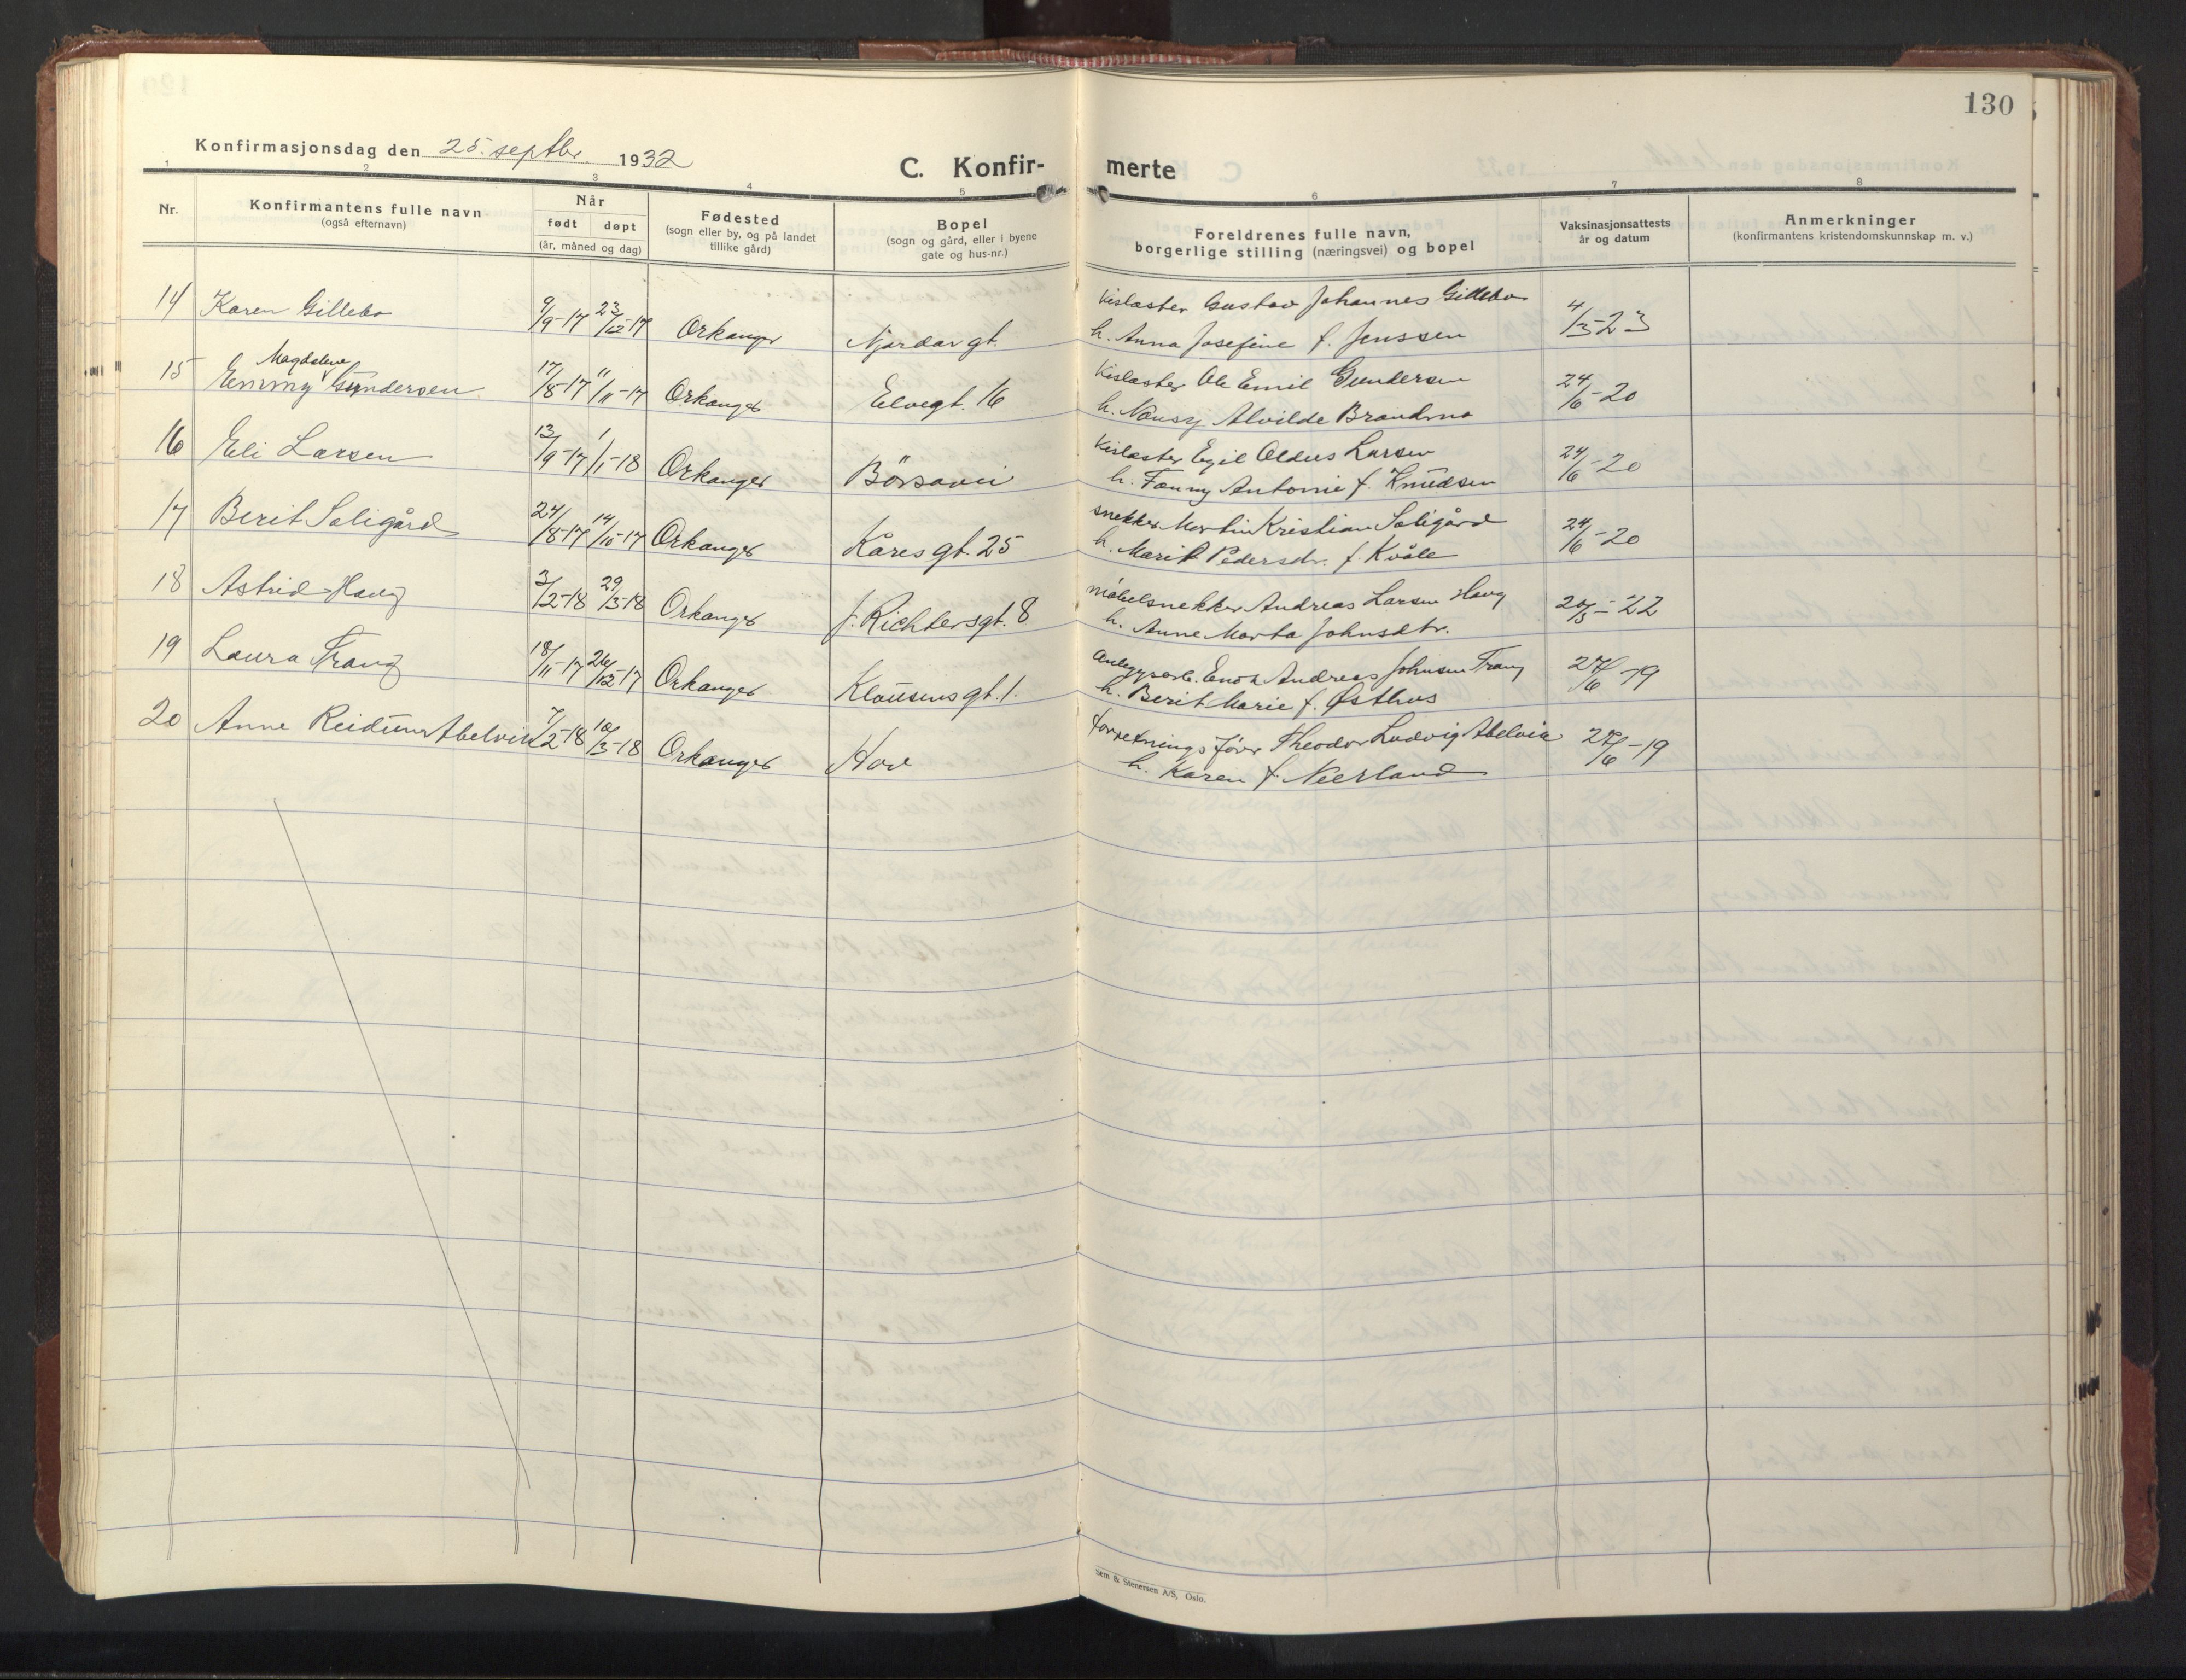 130
Konfirmasjonsdag den 25. septbr. 1932
C. Konfir- merte
1 2 3 4 5 6 7 8
Nr.
Konfirmantens fulle navn
(også efternavn)
Når
født døpt
(år, måned og dag)
Fødested
(sogn eller by, og på landet
tillike gård)
Bopel
(sogn og gård, eller i byene
gate og hus-nr.)
Foreldrenes fulle navn,
borgerlige stilling (næringsvei) og bopel
Vaksinasjonsattests
år og datum
Anmerkninger
(konfirmantens kristendomskunnskap m. v.)
14 Karen Gillebo 9/9-17 23/12-17 Orkanger Njardar gt. kislaster Gustav Johannes Gillebo 4/3-23
h. Anna Josefine f. Jenssen
Magdalene
15 Emmy Gundersen 17/8-17 11/11-17 Orkanger Elvegt. 16 kislaster Ole Emil Gundersen 24/6-20
h. Nansy Alvilde Brandsmo
16 Eli Larsen 13/9-17 1/1-18 Orkanger Börsavei kislaster Egil Oldus Larsen 24/6-20
h. Fanny Antonie f. Knudsen
17 Berit Soligård 24/8-17 14/10-17 Orkanger Kåres gt. 25 snekker Martin Kristian Soligård 24/6-20
h. Marit Pedersdr. f. Kvåle
18 Astrid Haug 3/2-18 29/3-18 Orkanger J. Richtersgt. 8 möbelsnekker Andreas Larsen Haug 20/5-22
h. Anne Marta Johnsdtr.
19 Laura Trang 18/11-17 26/12-17 Orkanger Klousens gt. 1. anleggsarb. Enok Andreas Johnsen Trang 27/6-19
h. Berit Marie f. Østhus
20 Anne Reidun Abelvik 7/2-18 10/3-18 Orkanger Hov forretningsförer Theodor Ludvig Abelvik 27/6-19
h. Karen f. Neerland
Sem & Stenersen A/S, Oslo.